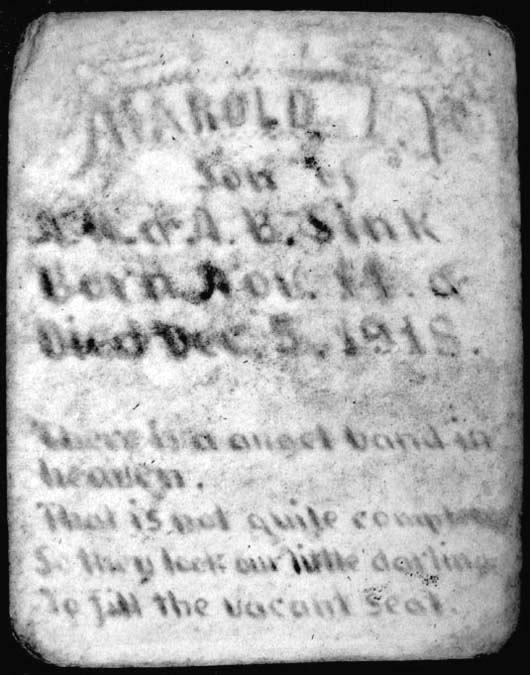 HAROLD
Son of
& A. B. Sink
Born Nov. 11. &
Died Dec. 5, 1918.
There is a angel band in
heaven.
That is not quite complete
So they took our little darling
To fill the vacant seat.